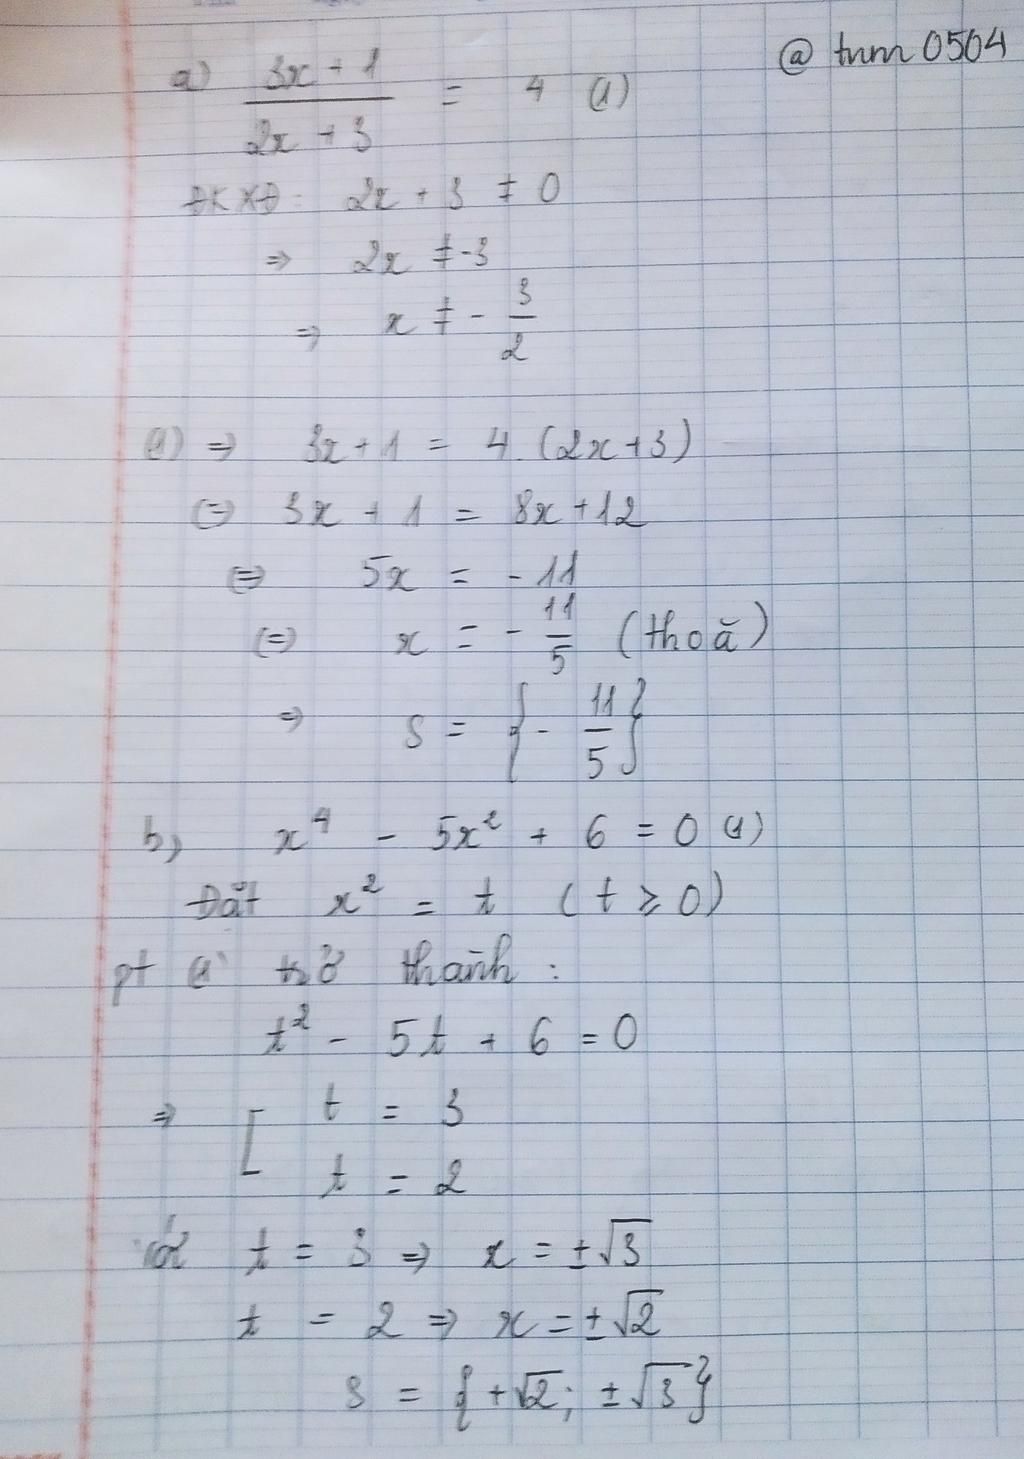 @ tnm 0504
a) \frac{3x + 1}{2x + 3} = 4 (1)
ĐKXĐ: 2x + 3 ≠ 0
⇒ 2x ≠ -3
⇒ x ≠ - \frac{3}{2}
(1) ⇒ 3x + 1 = 4.(2x+3)
⇔ 3x + 1 = 8x + 12
⇔ 5x = - 11
⇔ x = - \frac{11}{5} (thoả)
⇒ S = { - \frac{11}{5} }
b) x⁴ - 5x² + 6 = 0 (1)
Đặt x² = t (t ≥ 0)
pt (1) trở thành :
t² - 5t + 6 = 0
⇒ [ t = 3
t = 2
Với t = 3 ⇒ x = ±√3
t = 2 ⇒ x = ±√2
S = { +√2; ±√3 }